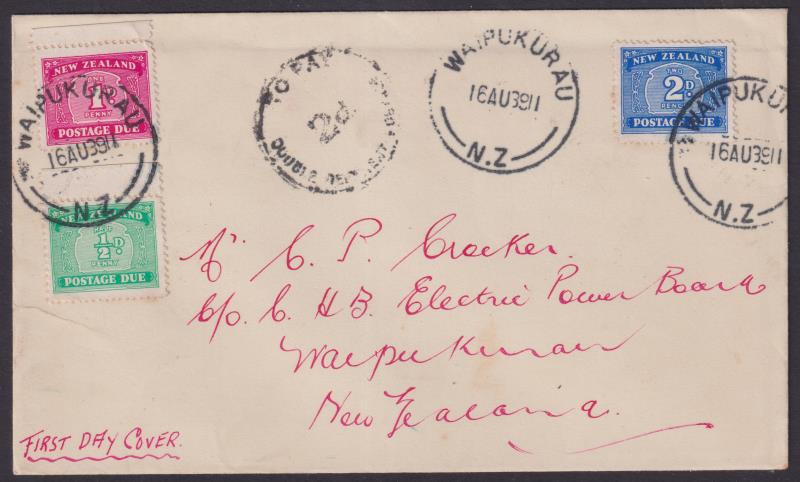 NEW ZEALAND
ONE
1D.
PENNY
POSTAGE DUE
WAIPUKURAU
16AU3911
N.Z
TO PAY
2d
DOUBLE
WAIPUKURAU
16AU3911
N.Z
NEW ZEALAND
TWO
2D.
PENCE
POSTAGE DUE
WAIPUKUR
16AU3911
N.Z
NEW ZEALAND
HALF
1/2 D.
PENNY
POSTAGE DUE
Mr C. P. Crocker.
c/o C. H B. Electric Power Board
Waipukurau
New Zealand.
FIRST DAY COVER.